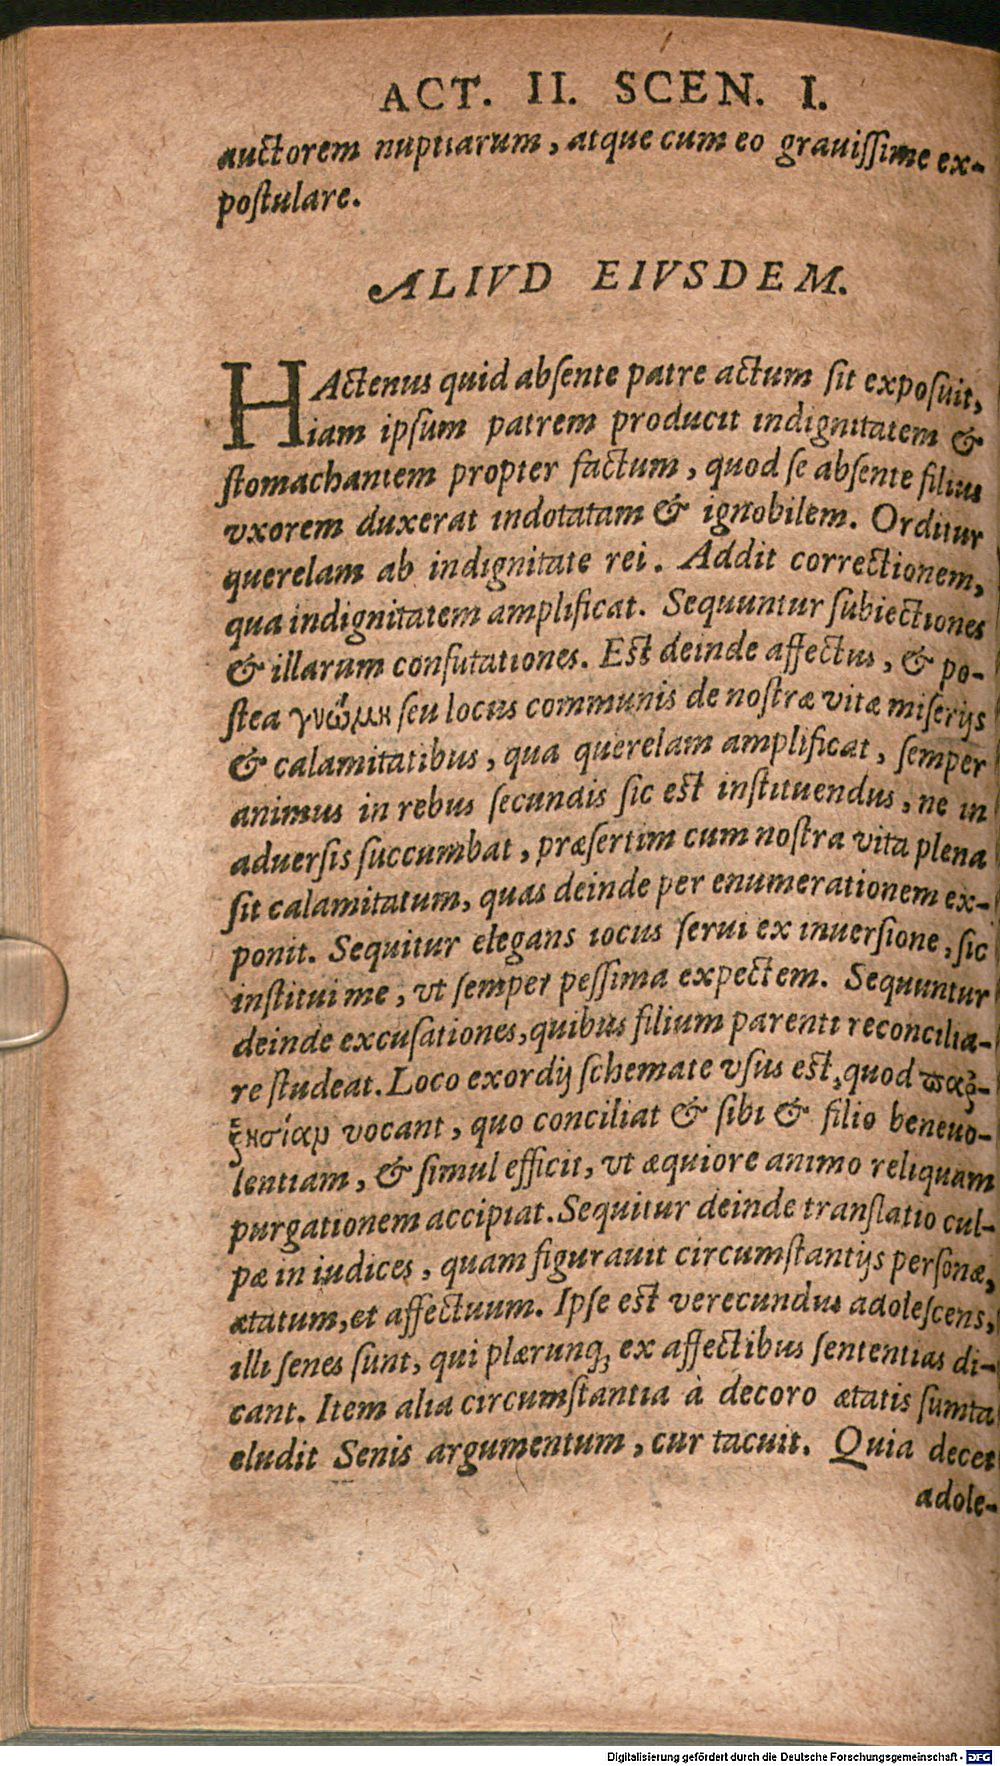 ACT. II. SCEN. I.
auctorem nuptiarum, atque cum eo grauiſſime ex-
poſtulare.
ALIVD EIVSDEM.
HActenus quid abſente patre actum ſit expoſuit,
iam ipſum patrem producit indignitatem &
ſtomachantem propter factum, quod ſe abſente filius
vxorem duxerat indotatam & ignobilem. Orditur
querelam ab indignitate rei. Addit correctionem,
qua indignitatem amplificat. Sequuntur ſubiectiones
& illarum confutationes. Eſt deinde affectus, & po-
ſtea γνώμη ſeu locus communis de noſtræ vitæ miſerijs
& calamitatibus, qua querelam amplificat, ſemper
animus in rebus ſecundis ſic eſt inſtituendus, ne in
aduerſis ſuccumbat, præſertim cum noſtra vita plena
ſit calamitatum, quas deinde per enumerationem ex-
ponit. Sequitur elegans iocus ſerui ex inuerſione, ſic
inſtitui me, vt ſemper peſſima expectem. Sequuntur
deinde excuſationes, quibus filium parenti reconcilia-
re ſtudeat. Loco exordij ſchemate vſus eſt, quod παρ-
ρησίαν vocant, quo conciliat & ſibi & filio beneuo-
lentiam, & ſimul efficit, vt æquiore animo reliquam
purgationem accipiat. Sequitur deinde tranſlatio cul-
pæ in iudices, quam figurauit circumſtantijs perſonæ,
ætatum, et affectuum. Ipſe eſt verecundus adoleſcens,
illi ſenes ſunt, qui plærunq; ex affectibus ſententias di-
cant. Item alia circumſtantia à decoro ætatis ſumta
eludit Senis argumentum, cur tacuit. Quia decet
adole-
Digitalisierung gefördert durch die Deutsche Forschungsgemeinschaft - DFG